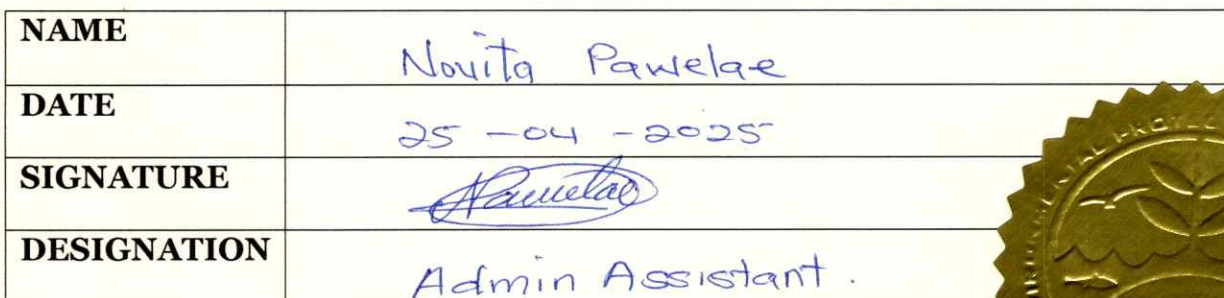 NAME Novita Pawelae
DATE 25 -04 -2025
SIGNATURE Pawelae
DESIGNATION Admin Assistant.